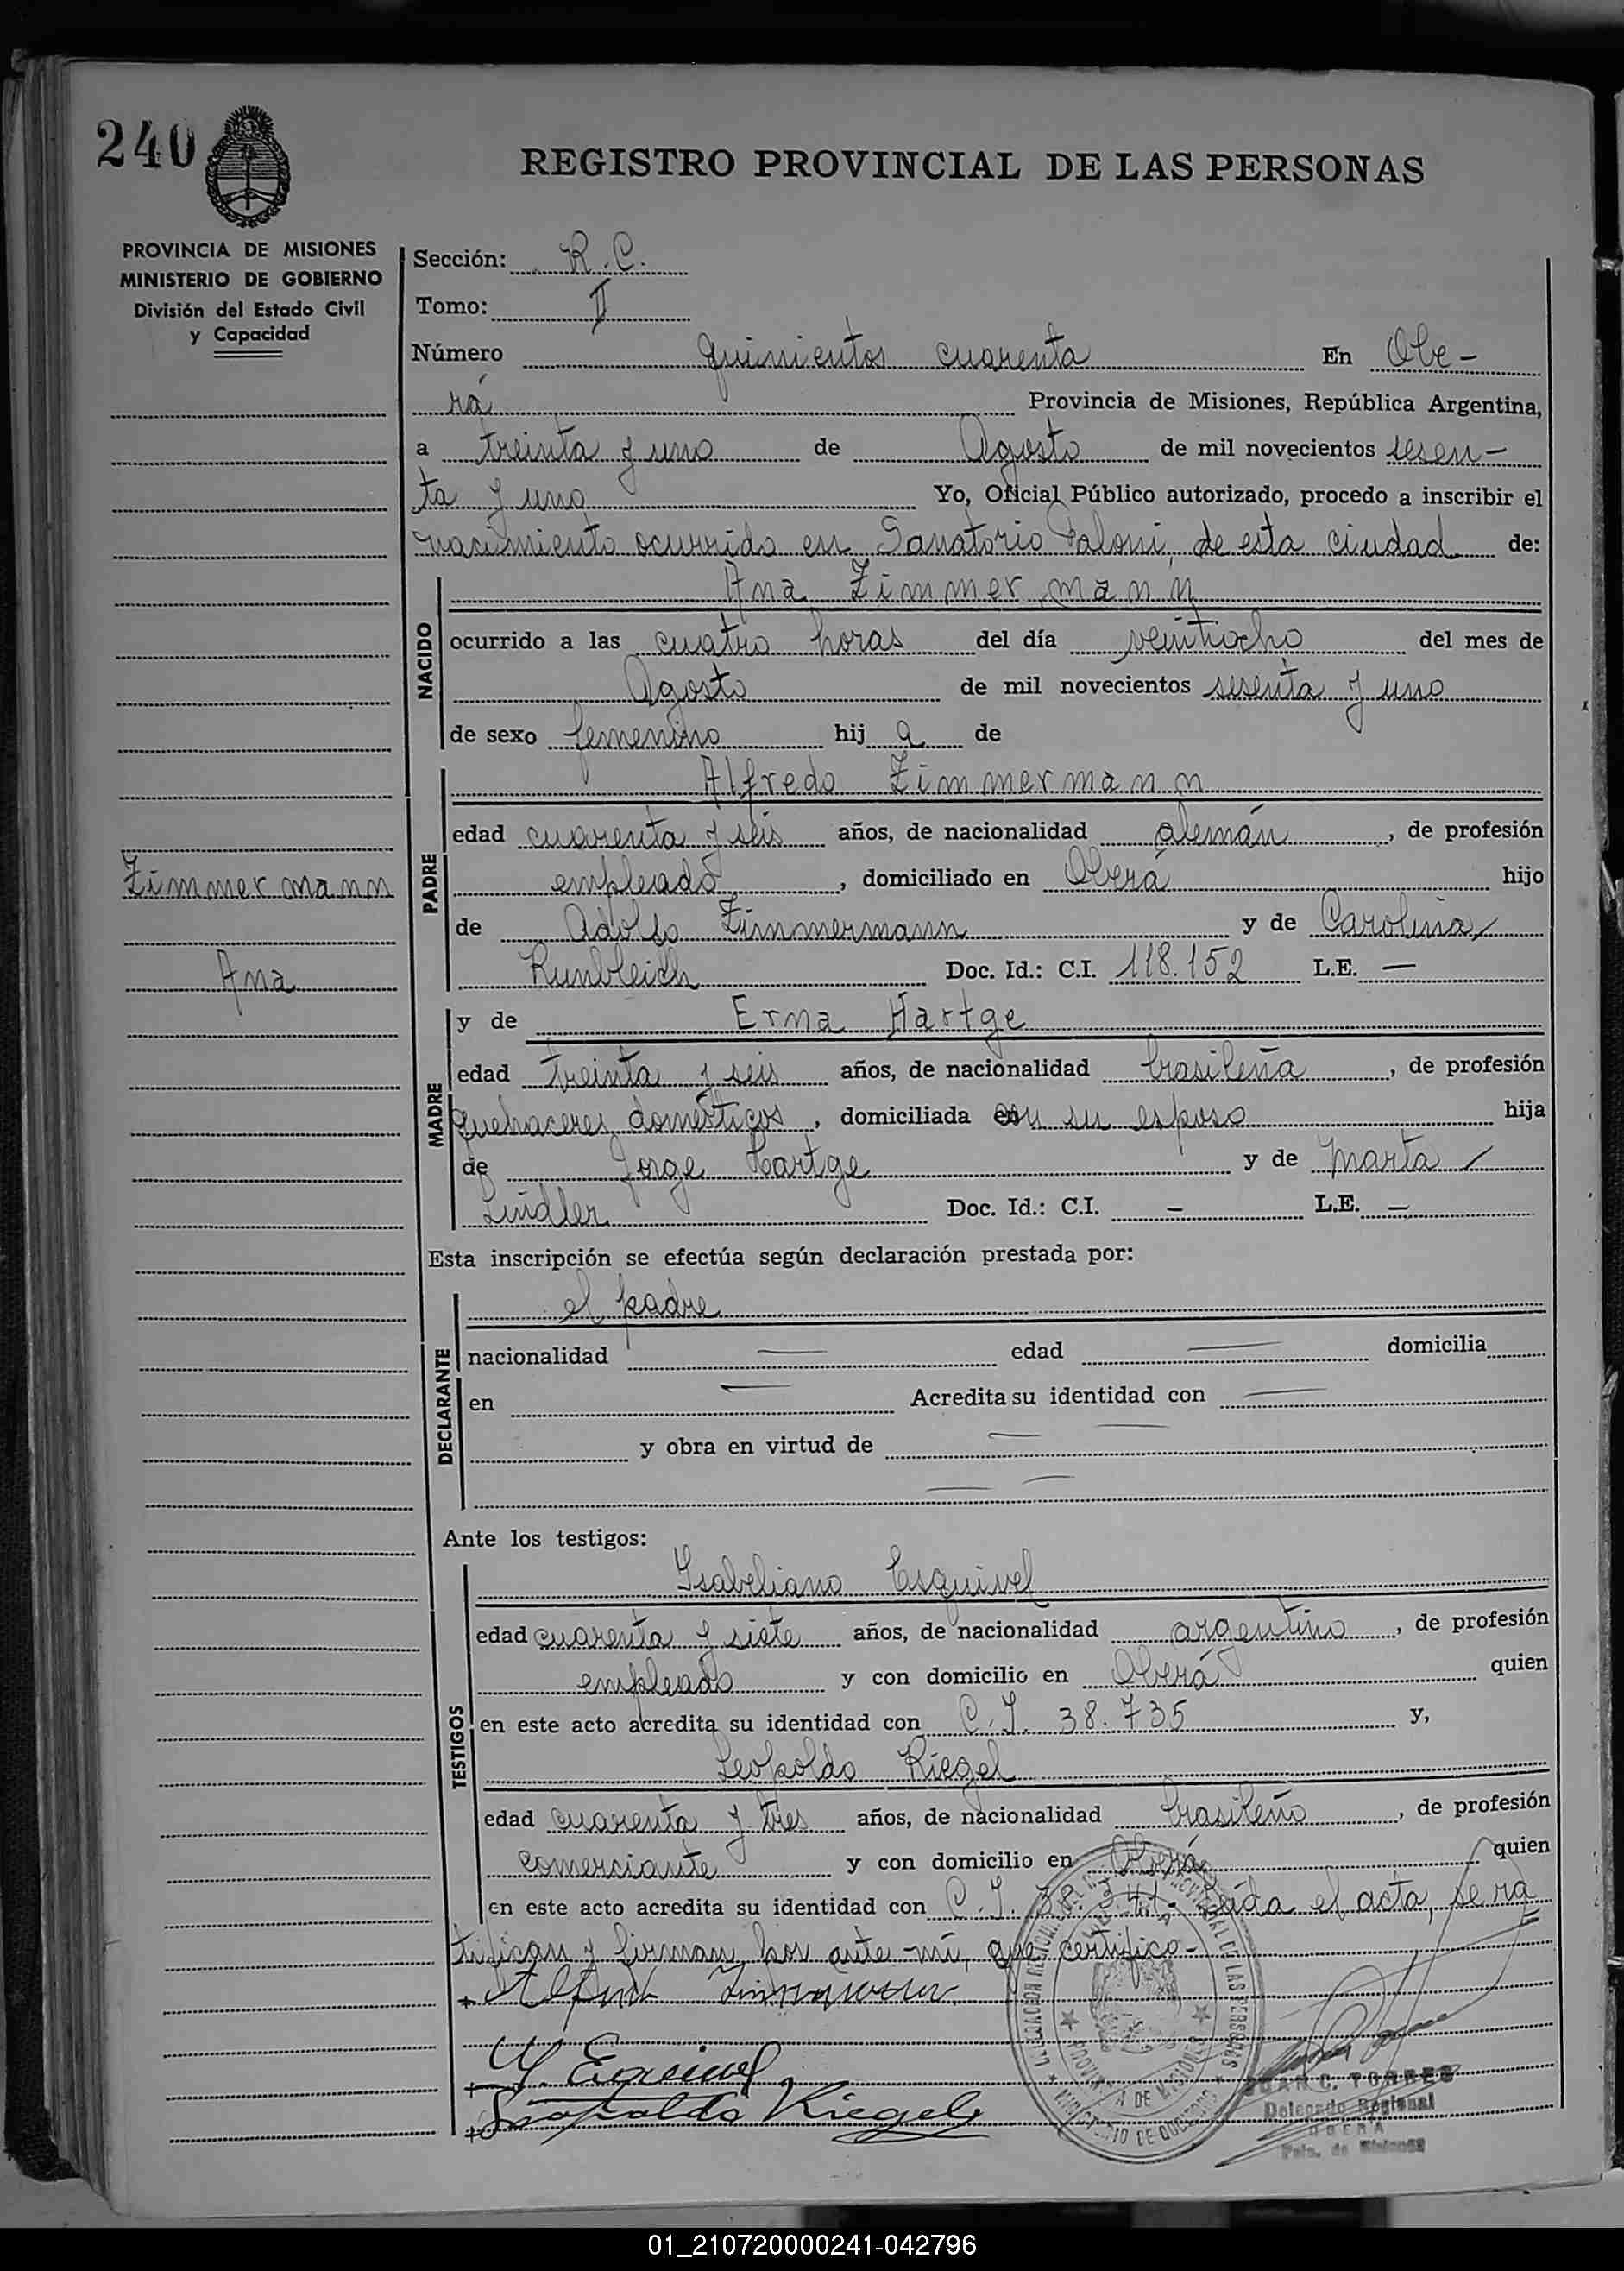 240
REGISTRO PROVINCIAL DE LAS PERSONAS
PROVINCIA DE MISIONES
MINISTERIO DE GOBIERNO
División del Estado Civil
y Capacidad
Sección: R. C.
Tomo: II
Número quinientos cuarenta En Obe-
rá Provincia de Misiones, República Argentina,
a treinta y uno de Agosto de mil novecientos sesen-
ta y uno Yo, Oficial Público autorizado, procedo a inscribir el
nacimiento ocurrido en Sanatorio de esta ciudad de:
NACIDO
Ana Zimmermann
ocurrido a las cuatro horas del día veintiocho del mes de
Agosto de mil novecientos sesenta y uno
de sexo femenino hij a de
PADRE
Alfredo Zimmermann
edad cuarenta y seis años, de nacionalidad alemán, de profesión
empleado, domiciliado en Oberá hijo
de Adolfo Zimmermann y de Carolina
Doc. Id.: C.I. 118.152 L.E. —
Zimmermann
Ana
MADRE
y de Erna Hartge
edad treinta y seis años, de nacionalidad brasileña, de profesión
quehaceres domésticos, domiciliada con su esposo hija
de Jorge Hartge y de Marta
Lindler Doc. Id.: C.I. — L.E. —
Esta inscripción se efectúa según declaración prestada por:
DECLARANTE
el padre
nacionalidad — edad — domicilia
en — Acredita su identidad con —
y obra en virtud de — —
— —
Ante los testigos:
TESTIGOS
Isabeliano Esquivel
edad cuarenta y siete años, de nacionalidad argentino, de profesión
empleado y con domicilio en Oberá quien
en este acto acredita su identidad con C. I. 38.735 y,
Leopoldo Riegel
edad cuarenta y tres años, de nacionalidad brasileño, de profesión
comerciante y con domicilio en Oberá quien
en este acto acredita su identidad con C. I. 38. Leída el acta, se ra
tifican y firman por ante mí, que certifico-
Leopoldo Riegel
JUAN C. TORRES
Delegado Regional
OBERA
Pcia. de Misiones
01_210720000241-042796